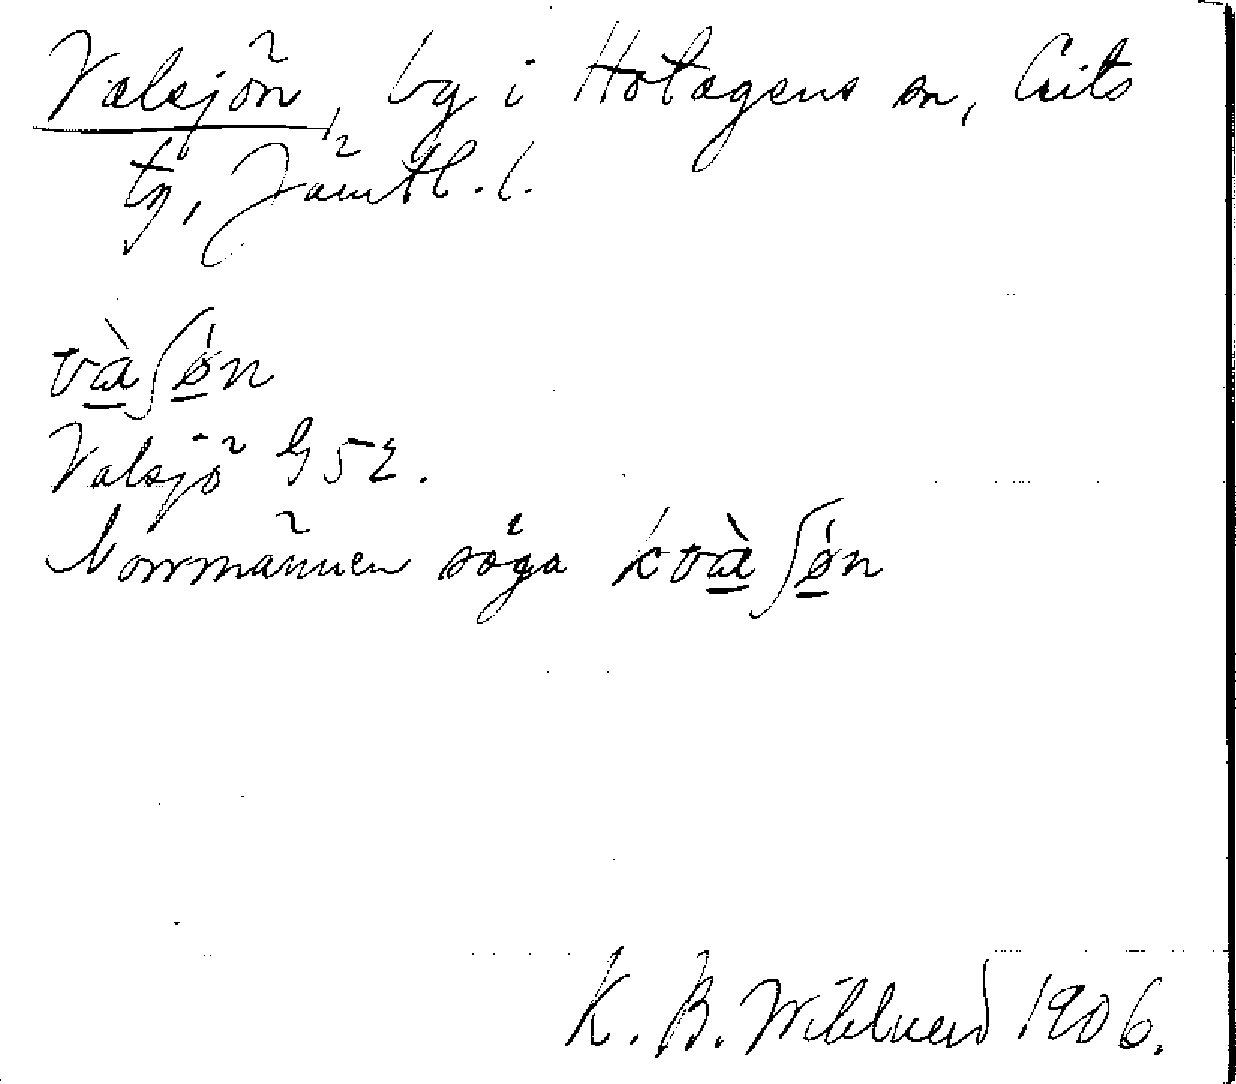 Valsjön, by i Hotagens sn, Lits
tg, Jämtl. l.
và̱ʃǿ̱n
Valsjö G 52.
Norrmännen säga kvà̱ʃǿ̱n
K. B. Wiklund 1906.